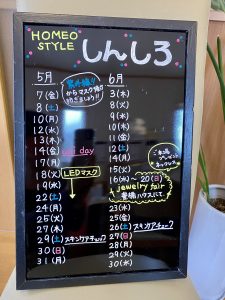 HOMEO
STYLE
しんしろ
5月
7(金)
8(土)
10(月)
12(水)
13(木)
14(金)
17(月)
18(火)
19(水)
22(土)
25(火)
27(木)
29(土)スキンケアチェック
30(日)
31(月)
紫外線!!
からマスク焼け
LEDマスク
day
6月
3(木)
8(火)
9(水)
10(木)
11(金)
12(土)
14(月)
15(火)
16(水)〜20(日)
jewelry fair
豊橋ハウスにて
23(水)
25(金)
26(土)スキンケアチェック
27(日)
28(月)
29(火)
30(水)